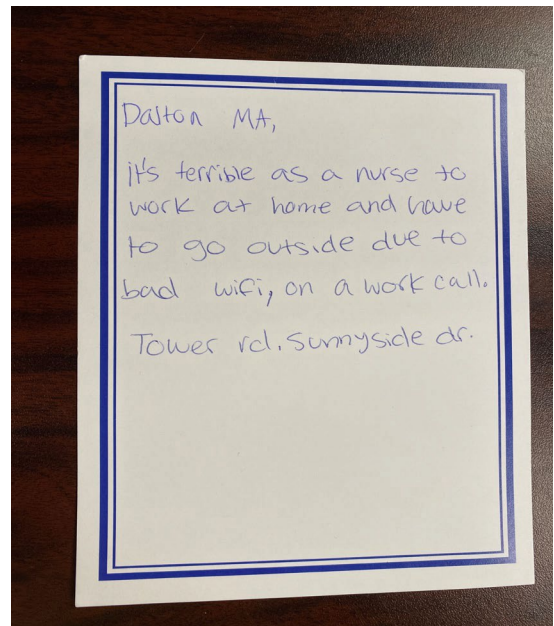 Dalton MA,
it's terrible as a nurse to
work at home and have
to go outside due to
bad wifi, on a work call.
Tower rd. Sunnyside dr.